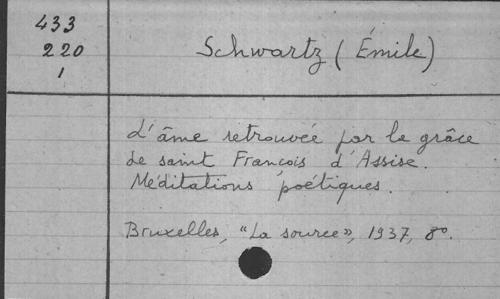 433
220
1
Schwartz (Émile)
L'âme retrouvée par la grâce
de saint François d'Assise.
Méditations poétiques.
Bruxelles, "La source", 1937, 8º.